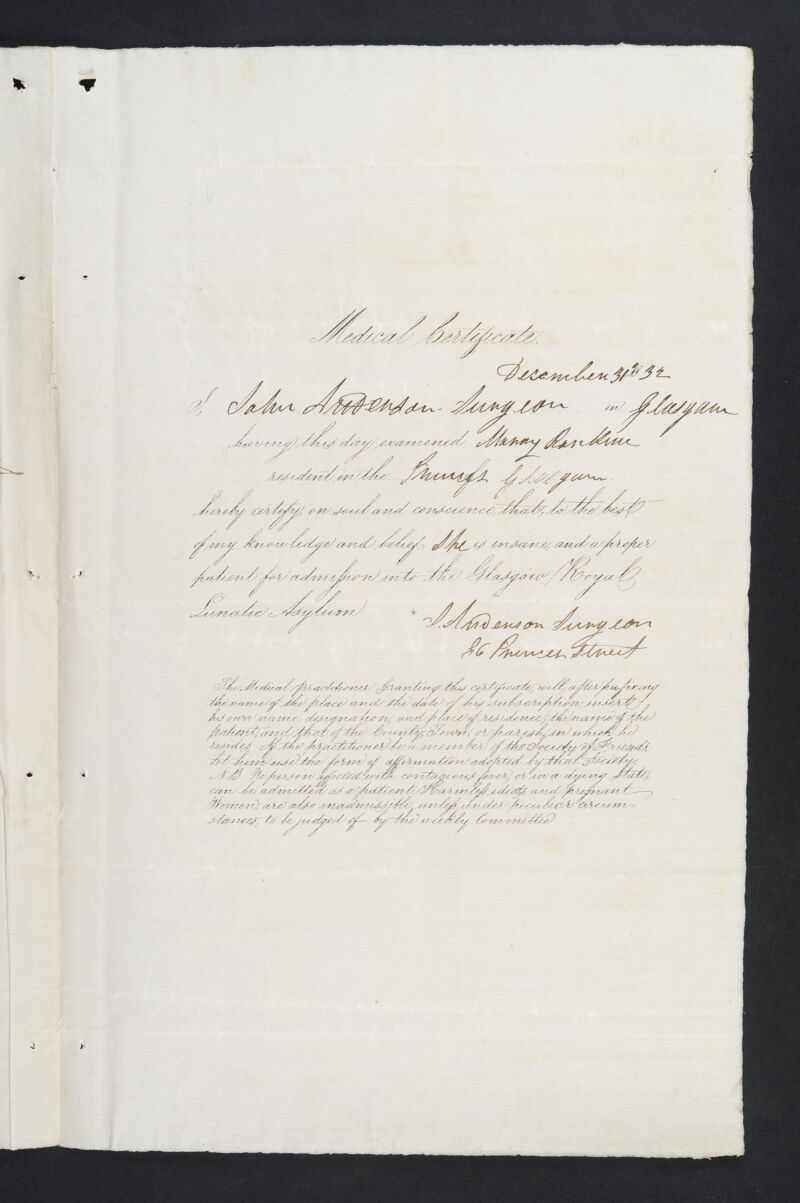 Medical Certificate.
December 31st 32
I, John Anderson Surgeon in Glasgow
having this day examined Maray Rankine
resident in the Glasgow
hereby certify on soul and conscience that, to the best
of my knowledge and belief She is insane, and a proper
patient for admission into the Glasgow Royal
Lunatic Asylum
J. Anderson Surgeon
Princes Street
The Medical practitioner Granting this certificate, will, after prefixing
the name of the place and the date of his subscription insert
his own name, designation, and place of residence; the name of the
patient, and that of the County, Town, or parish, in which he
resides. If the practitioner be a member of the Society of Friends
let him use the form of affirmation adopted by that Society.
N.B. No person affected with contagious fever, or in a dying State,
can be admitted as a patient. Harmless idiots and pregnant
Women are also inadmissible, unless under peculiar circum-
stances, to be judged of by the weekly Committee